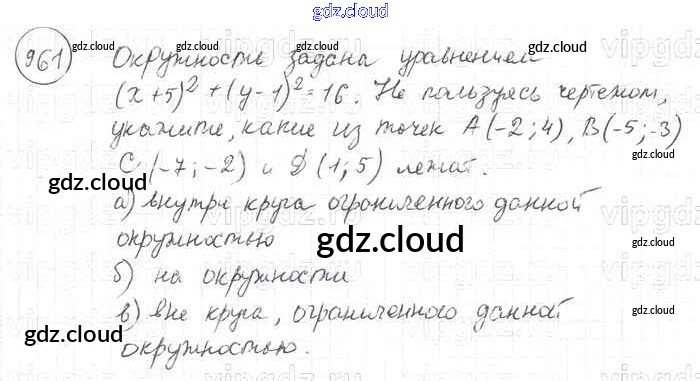 gdz.cloud
961 Окружность задана уравнением
(x+5)² + (y-1)² = 16. Не пользуясь чертежом,
укажите, какие из точек A(-2;4), B(-5;-3)
C(-7;-2) и D(1;5) лежат.
а) внутри круга ограниченного данной
окружностью
gdz.cloud
б) на окружности
в) вне круга, ограниченного данной
окружностью.
gdz.cloud
gdz.cloud
gdz.cloud
gdz.cloud
gdz.cloud
gdz.cloud
gdz.cloud